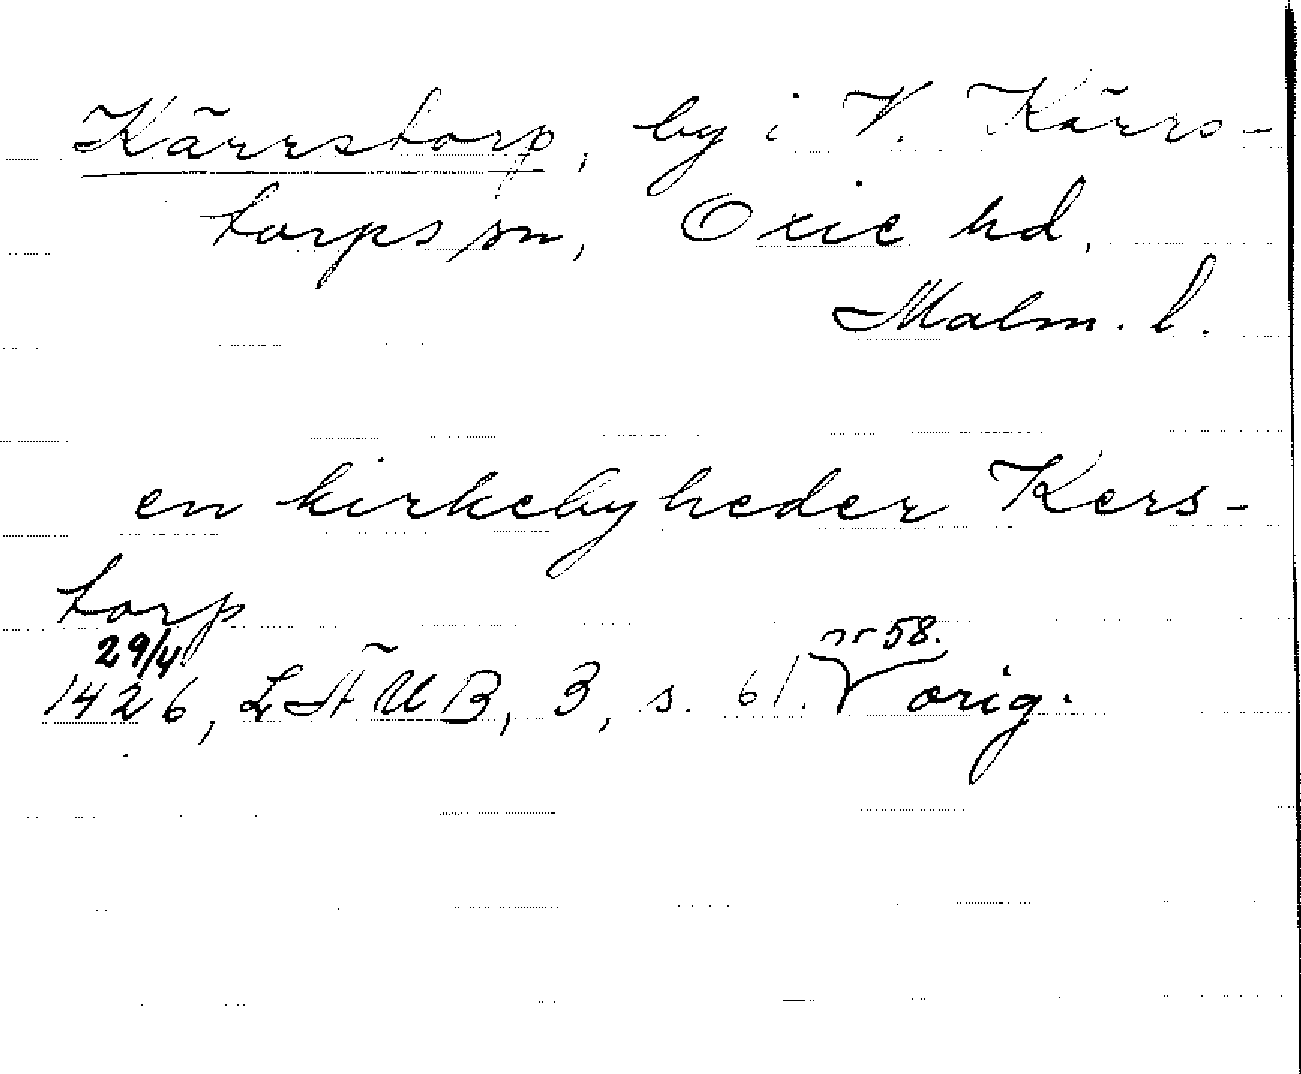 Kärrstorp, by i V. Kärrs-
torps sn, Oxie hd,
Malm. l.
en kirkeby heder Kers-
torp
29/4
1426, LÄUB, 3, s. 61. nr 58. orig.